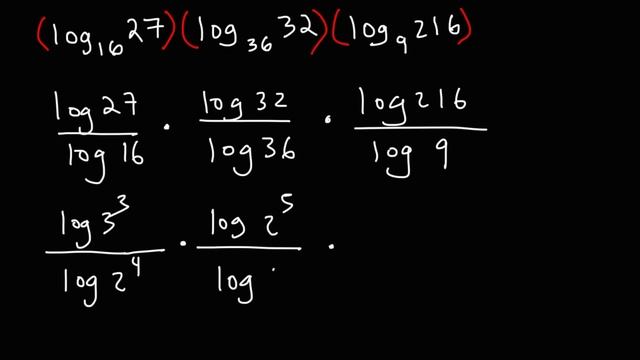 (log₁₆ 27)(log₃₆ 32)(log₉ 216)
log 27 / log 16 · log 32 / log 36 · log 216 / log 9
log 3³ / log 2⁴ · log 2⁵ / log ·